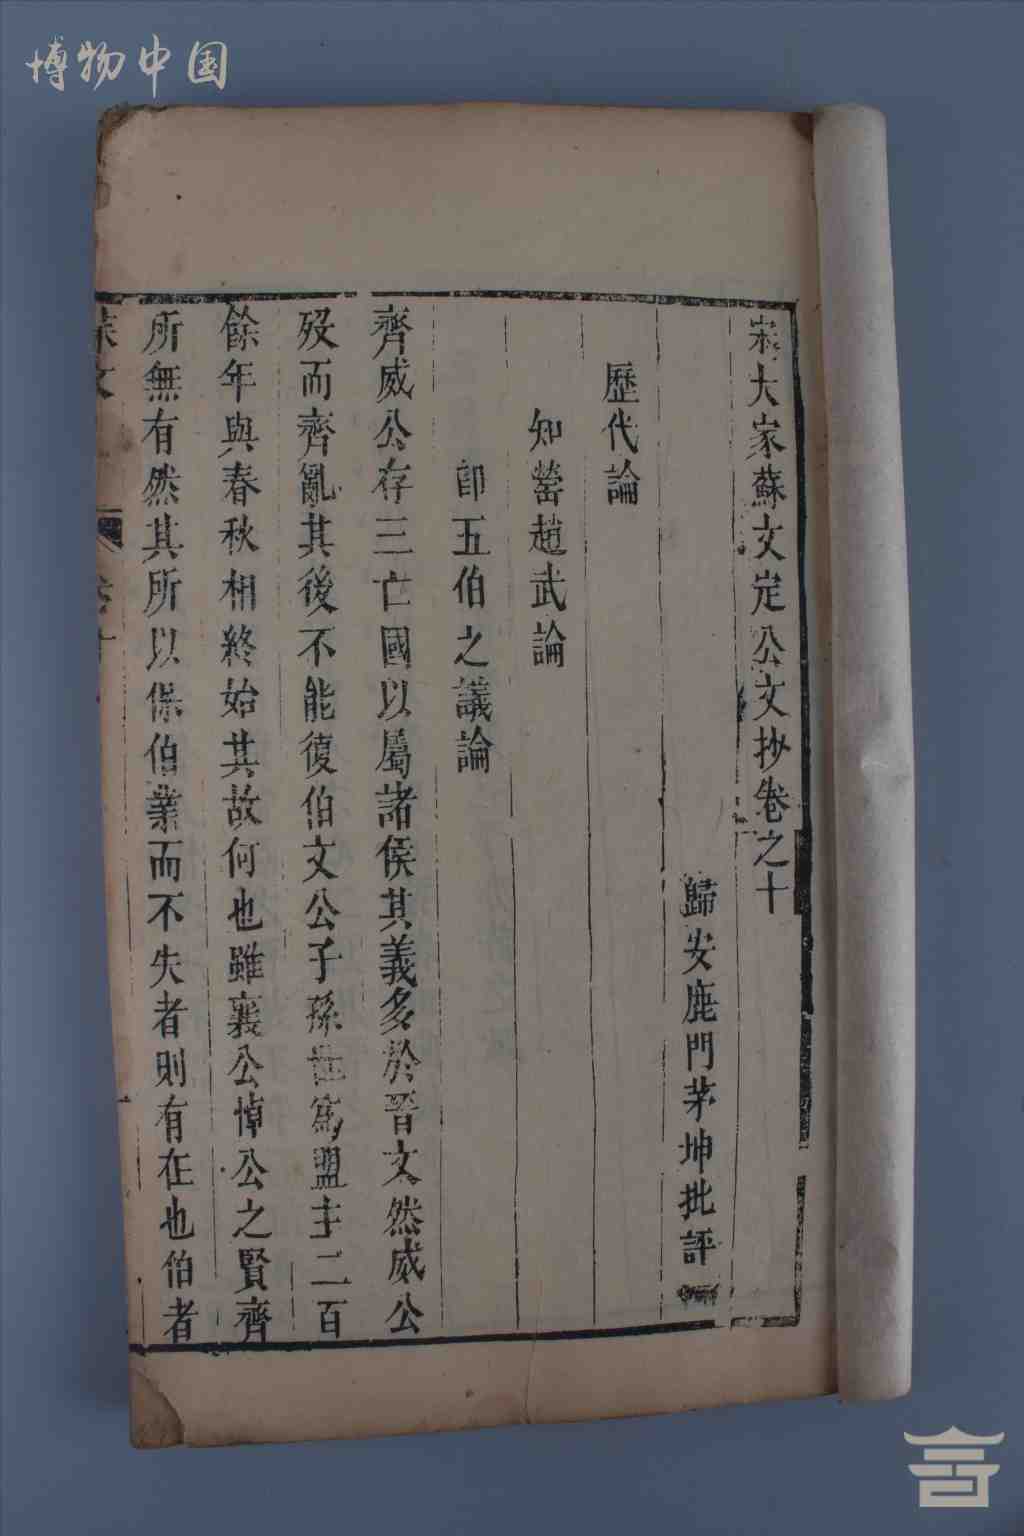 博物中国
宋大家蘇文定公文抄卷之十
歸安鹿門茅坤批評
歷代論
知罃趙武論
卽五伯之議論
齊威公存三亡國以屬諸侯其義多於晋文然威公
歿而齊亂其後不能復伯文公子孫世爲盟主二百
餘年與春秋相終始其故何也雖襄公悼公之賢齊
所無有然其所以保伯業而不失者則有在也伯者
蘇文 卷十